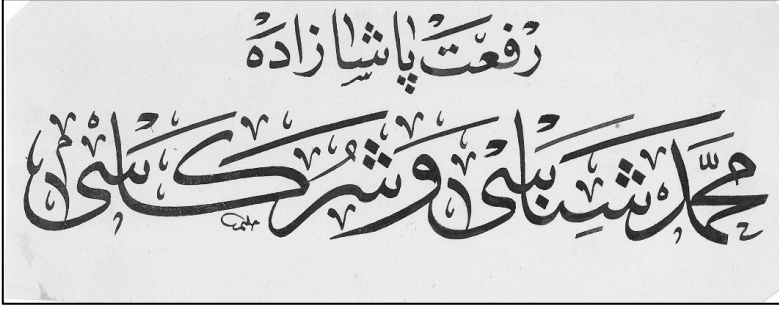 رفعت پاشا زاده
محمد شناسى و شركاسى